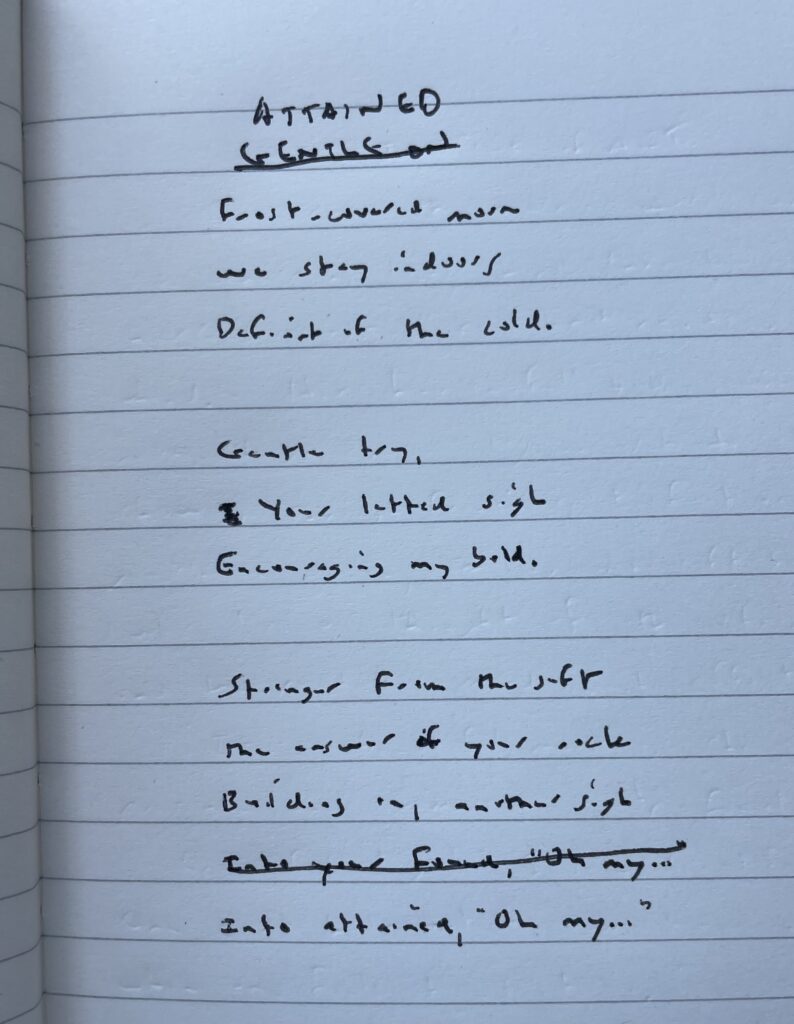 ATTAINED
GENTLE ON
Frost-covered morn
we stay indoors
Defiant of the cold.
Gentle try,
Your letted sigh
Encouraging my bold.
Stronger from the soft
the answer of your rock
Building on, another sigh
Into your found, "Oh my..."
Into attained, "Oh my..."